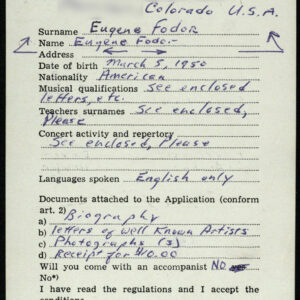 Colorado U.S.A.
Surname Eugene Fodor
Name Eugene Fodor
Address
Date of birth March 5, 1950
Nationality American
Musical qualifications See enclosed
letters, etc.
Teachers surnames See enclosed,
Please
Concert activity and repertory
See enclosed, Please
Languages spoken English only
Documents attached to the Application (conform
art. 2)
a) Biography
b) letters of well Known Artists
c) Photographs (3)
d) Receipt for $10.00
Will you come with an accompanist NO
No*)
I have read the regulations and I accept the
conditions